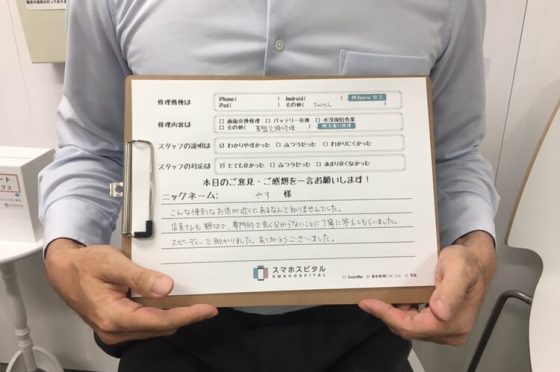 修理機種は
iPhone( ) Android( )
iPad( ) その他( Switch )
修理内容は
□ 画面交換修理 □ バッテリー交換 □ 水没復旧作業
□ その他( 基盤交換修理 )
スタッフの説明は ☑ わかりやすかった □ ふつうだった □ わかりにくかった
スタッフの対応は ☑ とても良かった □ ふつうだった □ あまり良くなかった
本日のご意見・ご感想を一言お願いします!
ニックネーム: やす 様
こんな便利なお店が近くにあるなんて知りませんでした。
店長さんも親切で、専門的で良く分からないことに丁寧に答えてもらいました。
スピーディーで助かりました。ありがとうございました。
スマホスピタル
SMAHOSPITAL